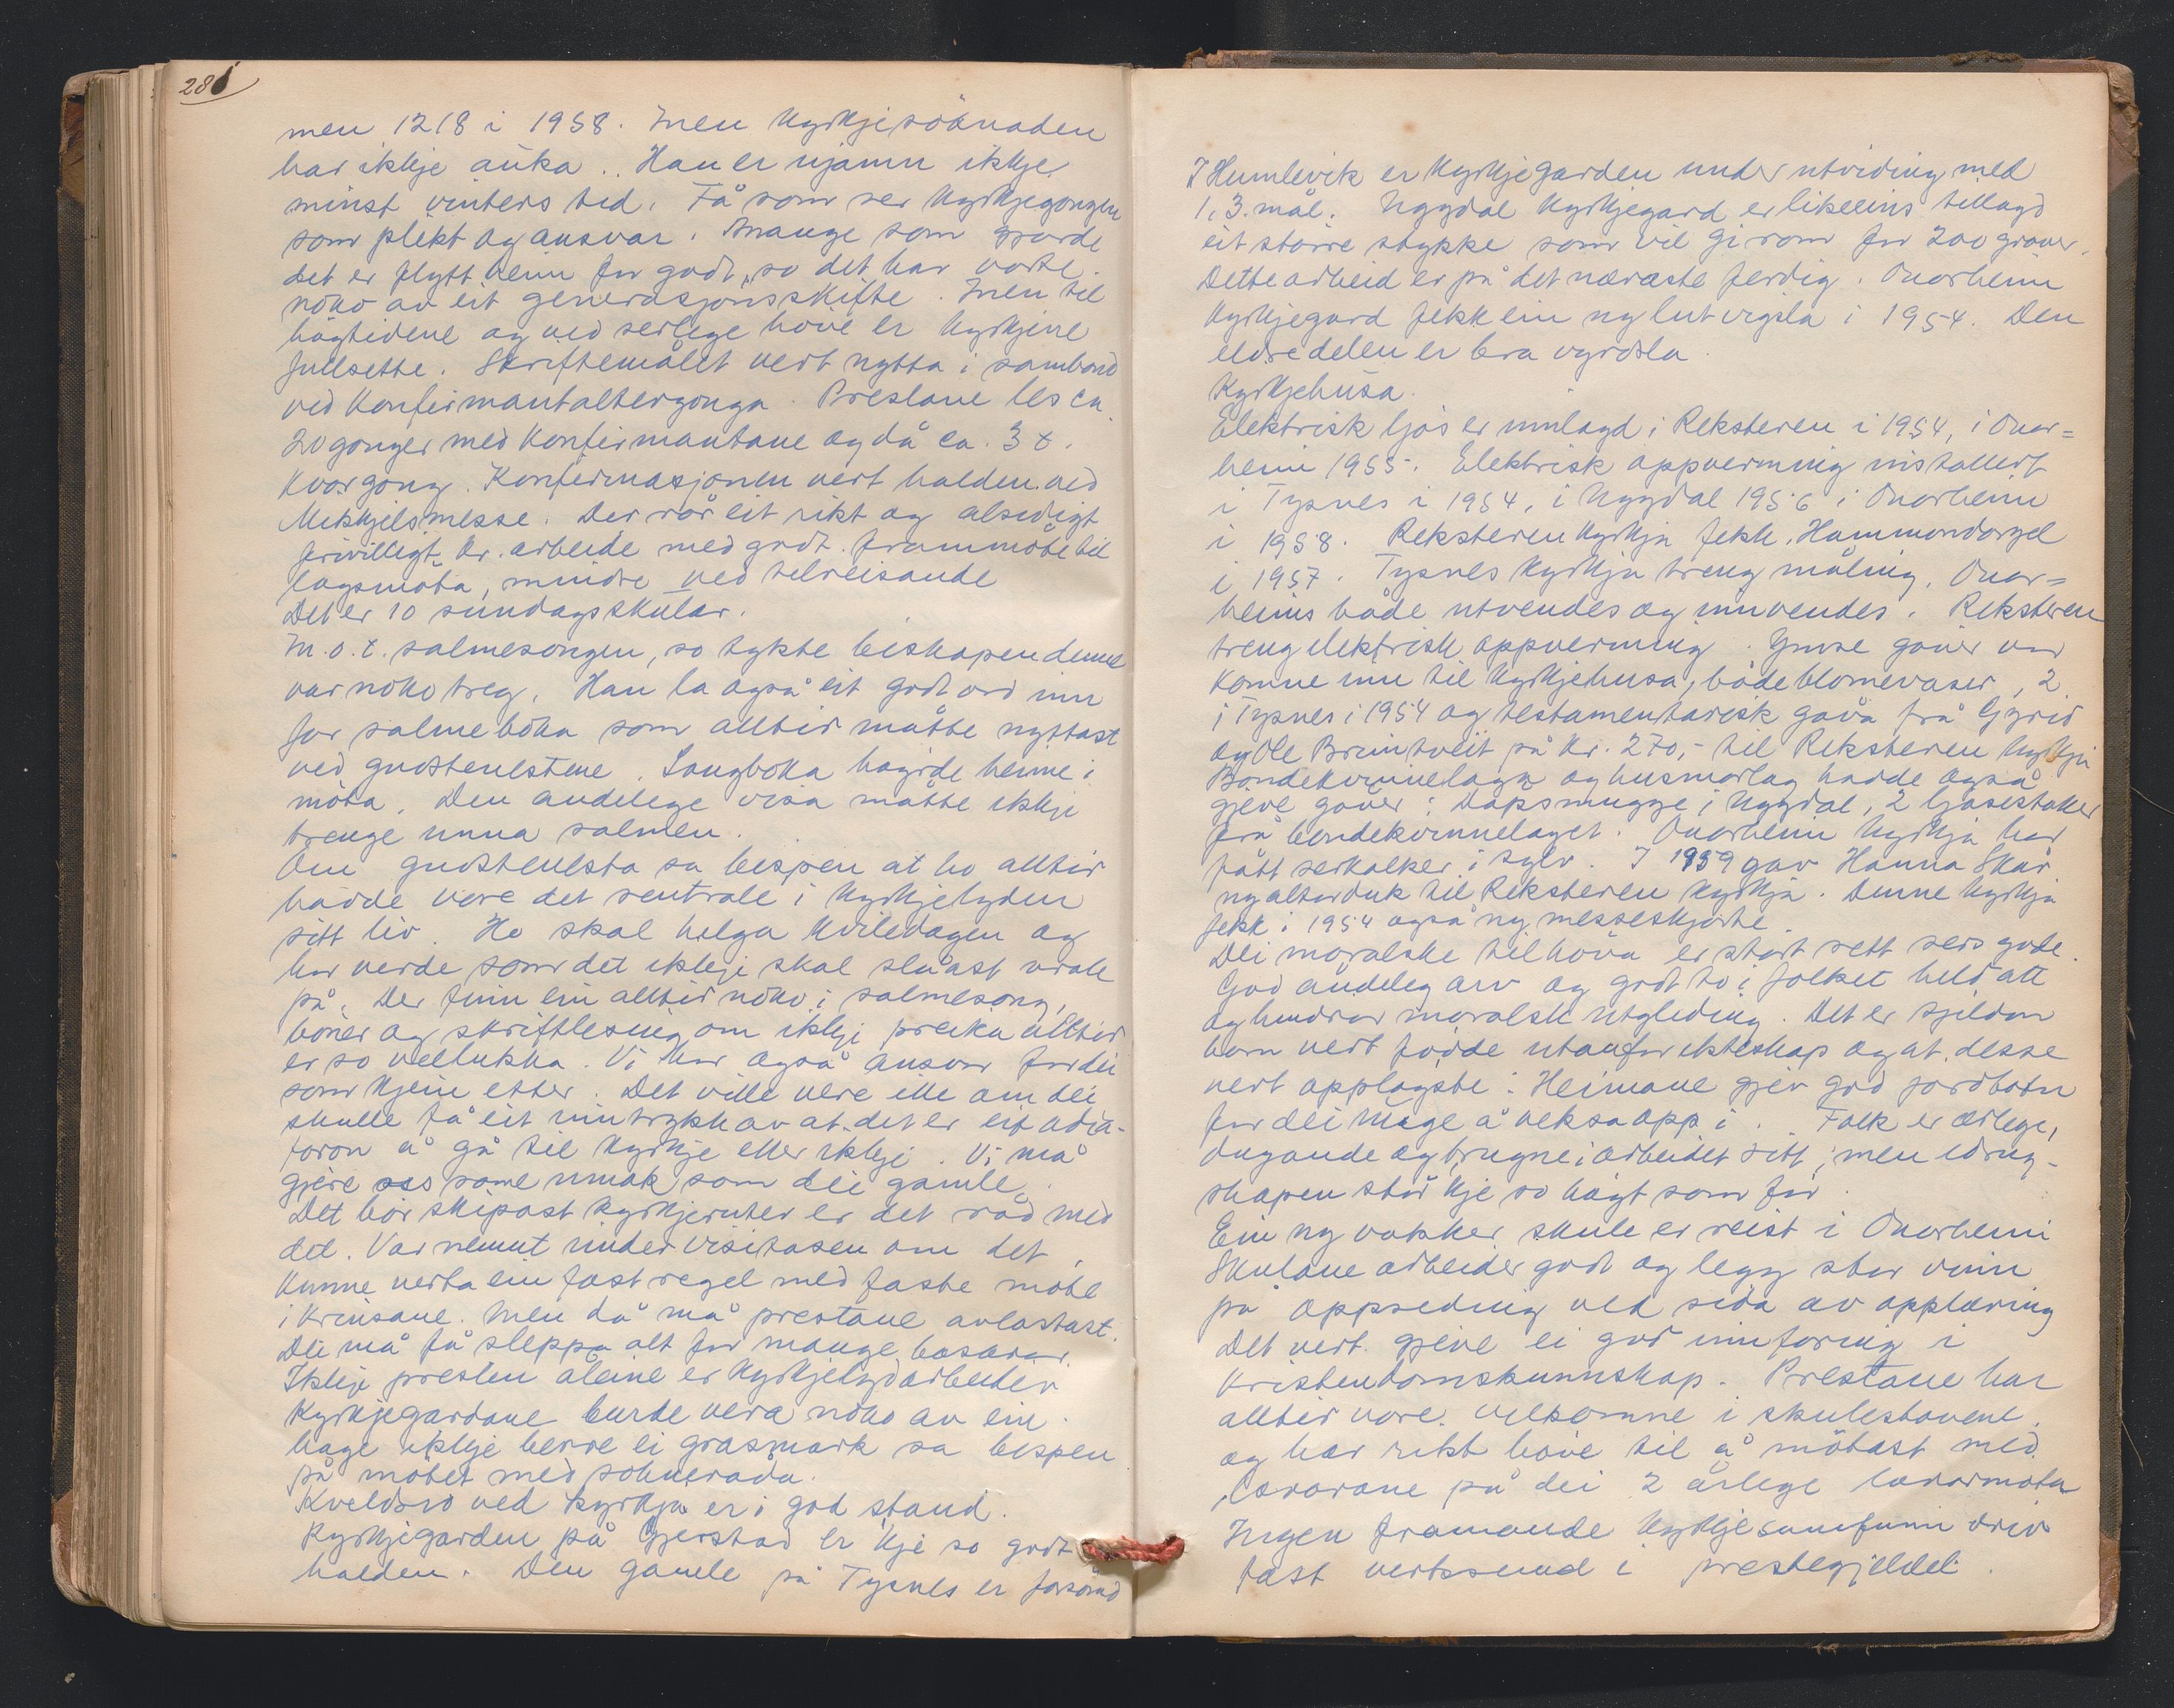 286
men 1218 i 1958. Men kyrkjesöknaden
har ikkje auka.. Han er ujamn ikkje
minst vinters tid. Få som ser kyrkjegongen
som plikt og ansvar. Mange som gjorde
det er flytt heim for godt, so det har vorte
noko av eit generasjonsskifte. Men til
högtidene og ved serlege höve er kyrkjene
fullsette. Skriftemålet vert nytta i samband
ved konfirmantaltergonga. Prestane les ca.
20 gonger med konfirmantane og då ca. 3 t.
kvar gong. Konfirmasjonen vert halden ved
Mikkjelsmesse. Der rår eit rikt og alsidigt
frivilligt kr. arbeide med godt frammöte til
lagsmöta, mindre ved tilreisande
Det er 10 sundagsskular.
M.o.t. salmesongen, so tykte biskopen denne
var noko treg. Han la også eit godt ord inn
for salmeboka som alltid måtte nyttast
ved gudstenestene. Songboka høyrde heime i
möta. Den andelege visa måtte ikkje
trenge unna salmen.
Om gudstenesta sa bispen at ho alltid
hadde vore det sentrale i kyrkjelyden
sitt liv. Ho skal helga kviledagen og
har verde som det ikkje skal sláast vrak
på. Der finn ein alltid noko i salmesong,
böner og skriftlesing om ikkje preika alltid
er so vellukka. Vi har også ansvar for dei
som kjem etter. Det ville vere ille om dei
skulle få eit inntrykk av at det er eit adia-
foron å gå til kyrkje eller ikkje. Vi må
gjere oss same umak som dei gamle.
Det bör skipast kyrkjeruter er det råd med
det. Var nemnt under visitasen om det
kunne verta ein fast regel med faste möte
i krinsane. Men då må prestane avlastast.
Dei må få sleppa alt for mange basarar.
Ikkje presten åleine er kyrkjelydarbeider
Kyrkjegardane burde vera noko av ein
hage ikkje berre ei grasmark sa bispen
på mötet med sokneråda.
Kveldsro ved kyrkja er i god stand.
Kyrkjegarden på Gjerstad er kje so godt
halden. Den gamle på Tysnes er forsömd
I Humlevik er kyrkjegarden under utviding med
1,3. mål. Uggdal kyrkjegard er likeeins tillagd
eit större stykke som vil gi rom for 200 graver.
Dette arbeid er på det næraste ferdig. Onarheim
kyrkjegard fekk ein ny lut vigsla i 1954. Den
eldre delen er bra vyrdsla.
Kyrkjehusa.
Elektrisk ljos er innlagd i Reksteren i 1954, i Onar=
heim 1955. Elektrisk oppverming installert
i Tysnes i 1954, i Uggdal 1956 i Onarheim
i 1958. Reksteren kyrkja fekk Hammondorgel
i 1957. Tysnes kyrkja treng måling. Onar=
heims både utvendes og innvendes. Reksteren
treng elektrisk oppverming. Ymse gåver var
komne inn til kyrkjehusa, både blomevaser, 2
i Tysnes i 1954 og testamentarisk gåva frå Gyrid
og Ole Brimtveit på kr. 270,- til Reksteren kyrkja
Bondekvinnelaga og husmorlag hadde også
gjeve gåver: Dåpsmugge i Uggdal, 2 ljosestaker
frå bondekvinnelaget. Onarheim kyrkja har
fått serkalker i sylv. I 1959 gav Hanna Skår
ny alterduk til Reksteren kyrkja. Denne kyrkja
fekk i 1954 også ny messeskjorte.
Dei moralske tilhöva er stort sett sers gode.
God åndeleg arv og godt to i folket held att
og hindrar moralsk utgliding. Det er sjeldan
born vert födde utanfor ekteskap og at desse
vert opplöyste. Heimane gjev god jordbotn
for dei unge å veksa opp i. Folk er ærlege,
dugande og trugne i arbeidet sitt, men edrug-
skapen står kje so högt som för.
Ein ny vakker skule er reist i Onarheim
Skulane arbeider godt og legg stor vinn
på oppseding ved sida av opplæring
Det vert gjeve ei god innföring i
kristendomskunnskap. Prestane har
alltid vore velkomne i skulestovene
og har rikt höve til å mötast med
lærarane på dei 2 årlege lærarmöta
Ingen framande kyrkjesamfunn driv
fast verksemd i prestegjeldet.